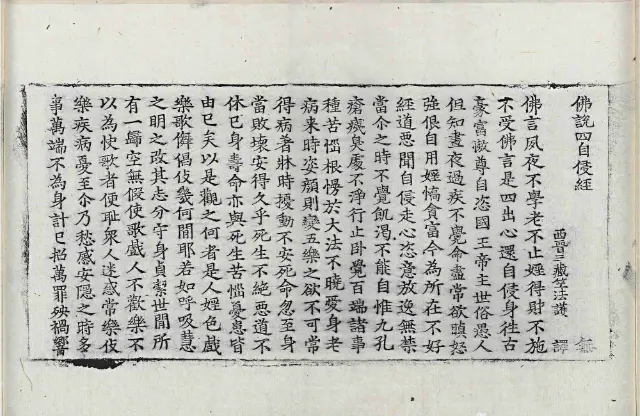 佛說四自侵經
西晉三藏竺法護　譯　無
佛言夙夜不學老不止婬得財不施
不受佛言是四出心還自侵身往古
豪富傲尊自恣國王帝主世俗愚人
但知晝夜過疾不覺命盡常欲瞋怒
強佷自用婬慆貪富今為所在不好
經道思聞自侵走心恣意放逸無禁
當尒之時不覺飢渴不能自惟九孔
瘡痍臭處不淨行止臥覺百端諸事
種苦惱根慢於大法不曉愛身老
病来時姿顏則變五樂之欲不可常
得病著牀時擾動不安死命忽至身
當敗壞安得久乎死生不絕惡道不
休已身壽命亦與死生苦惱憂患皆
由已矣以是觀之何者是人婬色戲
樂歌儛倡伎幾何閒耶若如呼吸慧
之明之改其志分守身貞潔世閒所
有一歸空無假使歌戲人不歡樂不
以為快歌者便耻衆人迷惑常樂伎
樂疾病憂至尒乃愁慼安隱之時多
事萬端不為身計已招萬罪殃禍響